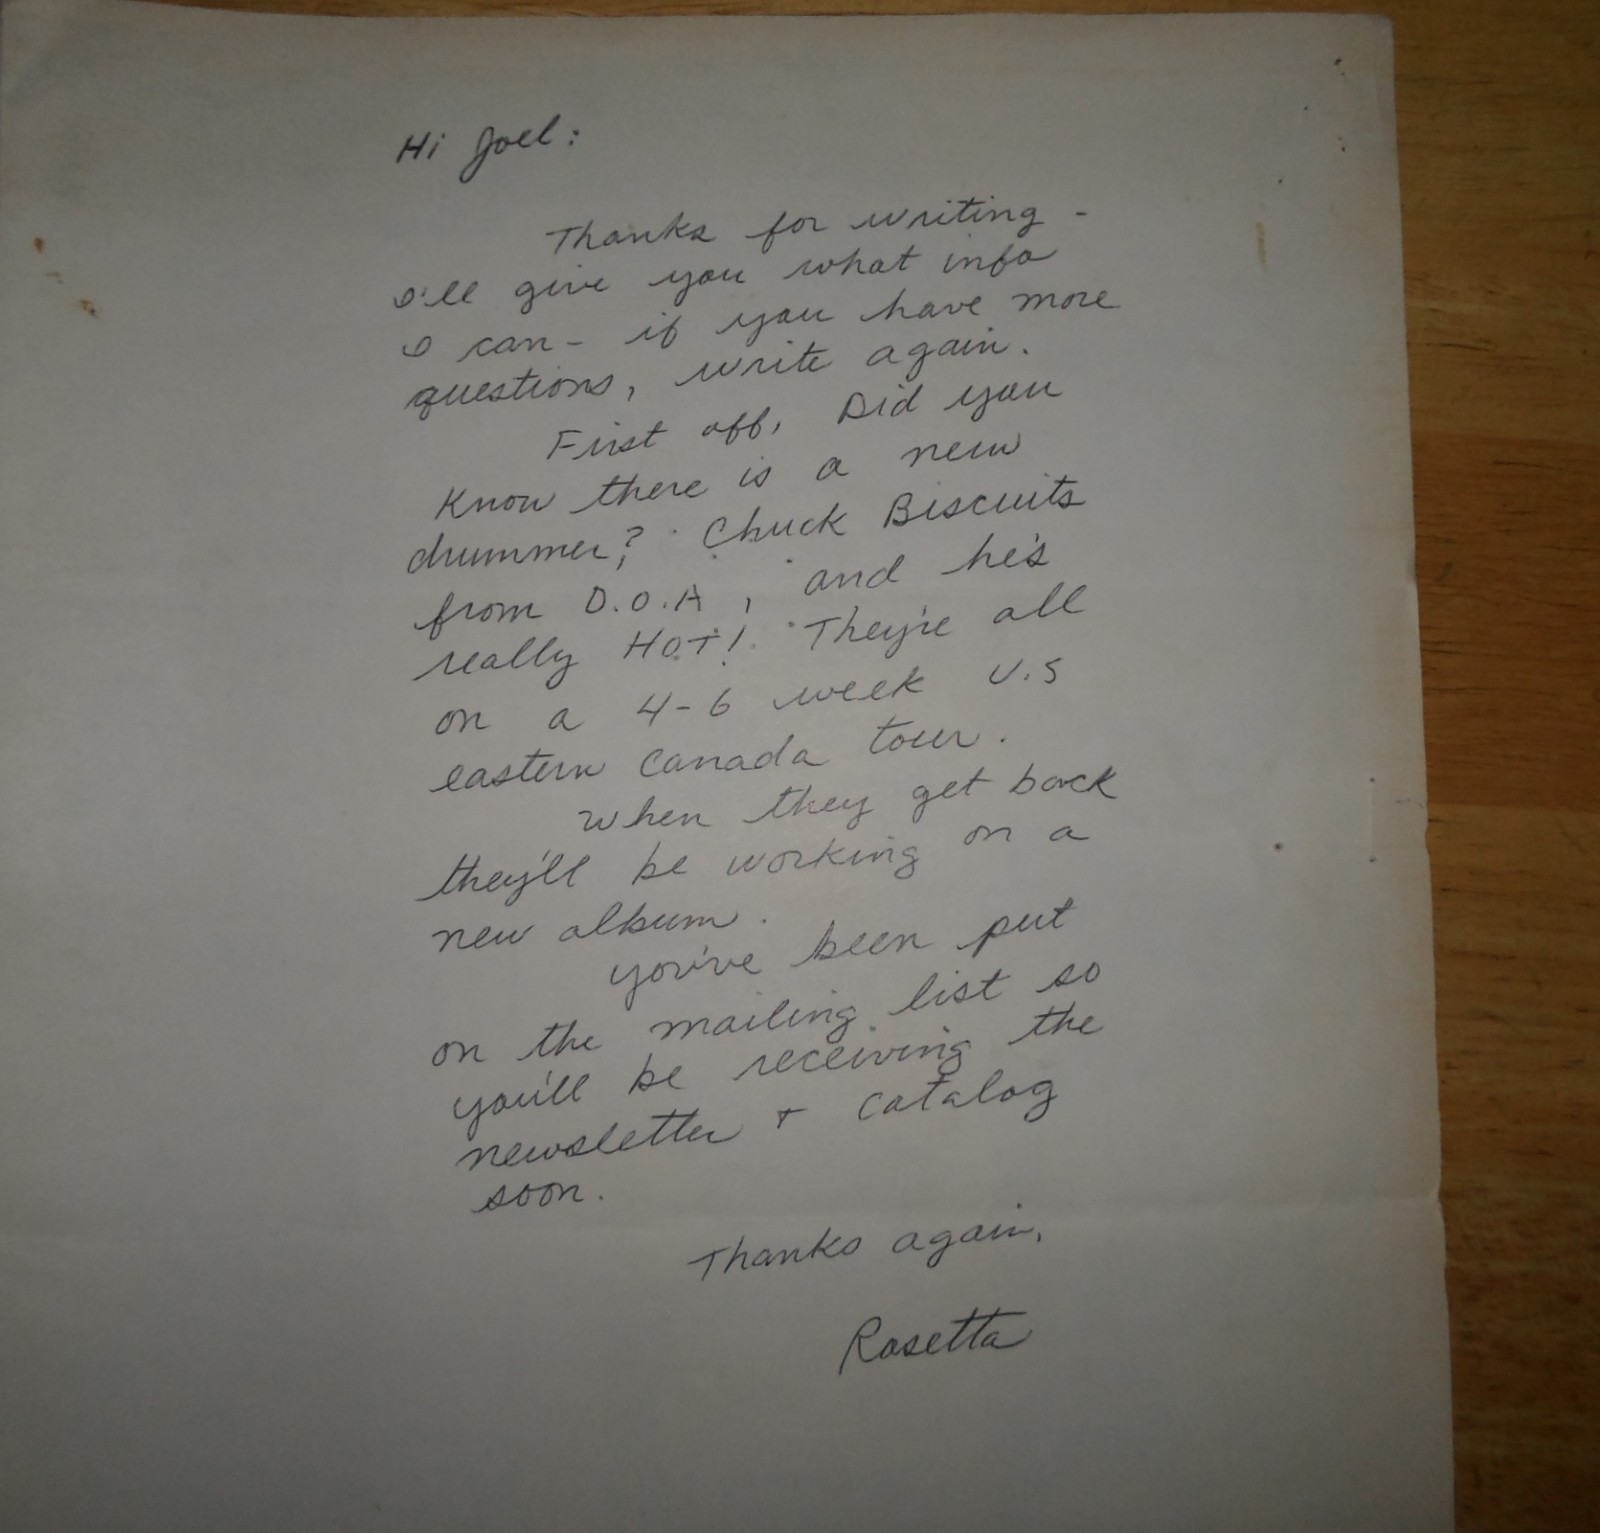 Hi Joel:
Thanks for writing -
I'll give you what info
I can - if you have more
questions, write again.
First off, Did you
know there is a new
drummer? Chuck Biscuits
from D.O.A, and he's
really HOT! They're all
on a 4-6 week U.S
eastern Canada tour.
When they get back
they'll be working on a
new album.
You've been put
on the mailing list so
you'll be receiving the
newsletter + catalog
soon.
Thanks again,
Rosetta